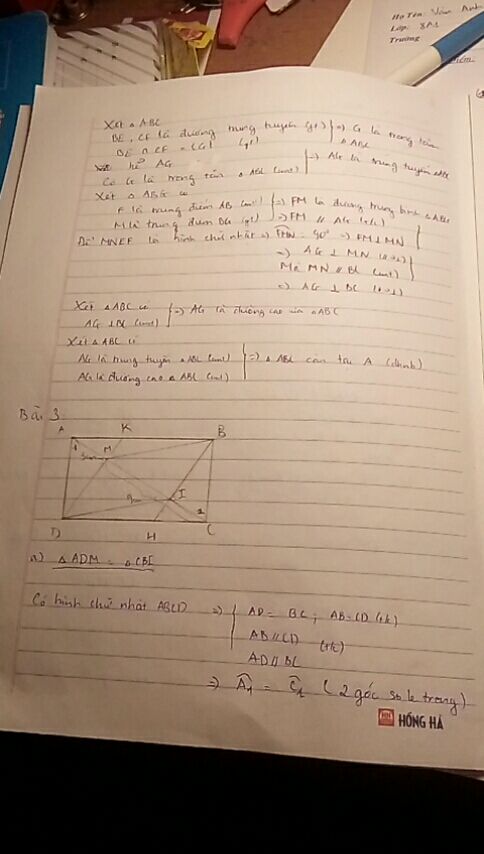 Họ Tên: Vân Anh
Lớp: 8A1
Trường
Xét △ ABC
BE, CF là đường trung tuyến (gt) } => G là trọng tâm
BE ∩ CF = {G} (gt) △ ABC
kẻ AG
Có G là trọng tâm △ ABC (cmt) => AG là trung tuyến △ABC
Xét △ ABG có
F là trung điểm AB (cmt) } => FM là đường trung bình △ ABG
M là trung điểm BG (gt) => FM // AG (t/c)
Để MNEF là hình chữ nhật => FMN = 90° => FM ⊥ MN
=> AG ⊥ MN
Mà MN // BC (cmt)
=> AG ⊥ BC
Xét △ ABC có
AG ⊥ BC (cmt) } => AG là đường cao của △ ABC
Xét △ ABC có
AG là trung tuyến △ ABC (cmt) } => △ ABC cân tại A (dhnb)
AG là đường cao △ ABC (cmt)
Bài 3
A K B
M
I
D H C
a) △ ADM = △ CBI
Có hình chữ nhật ABCD => { AD = BC ; AB = CD (t/c)
AB // CD (t/c)
AD // BC
=> Â1 = Ĉ1 ( 2 góc so le trong)
HỒNG HÀ